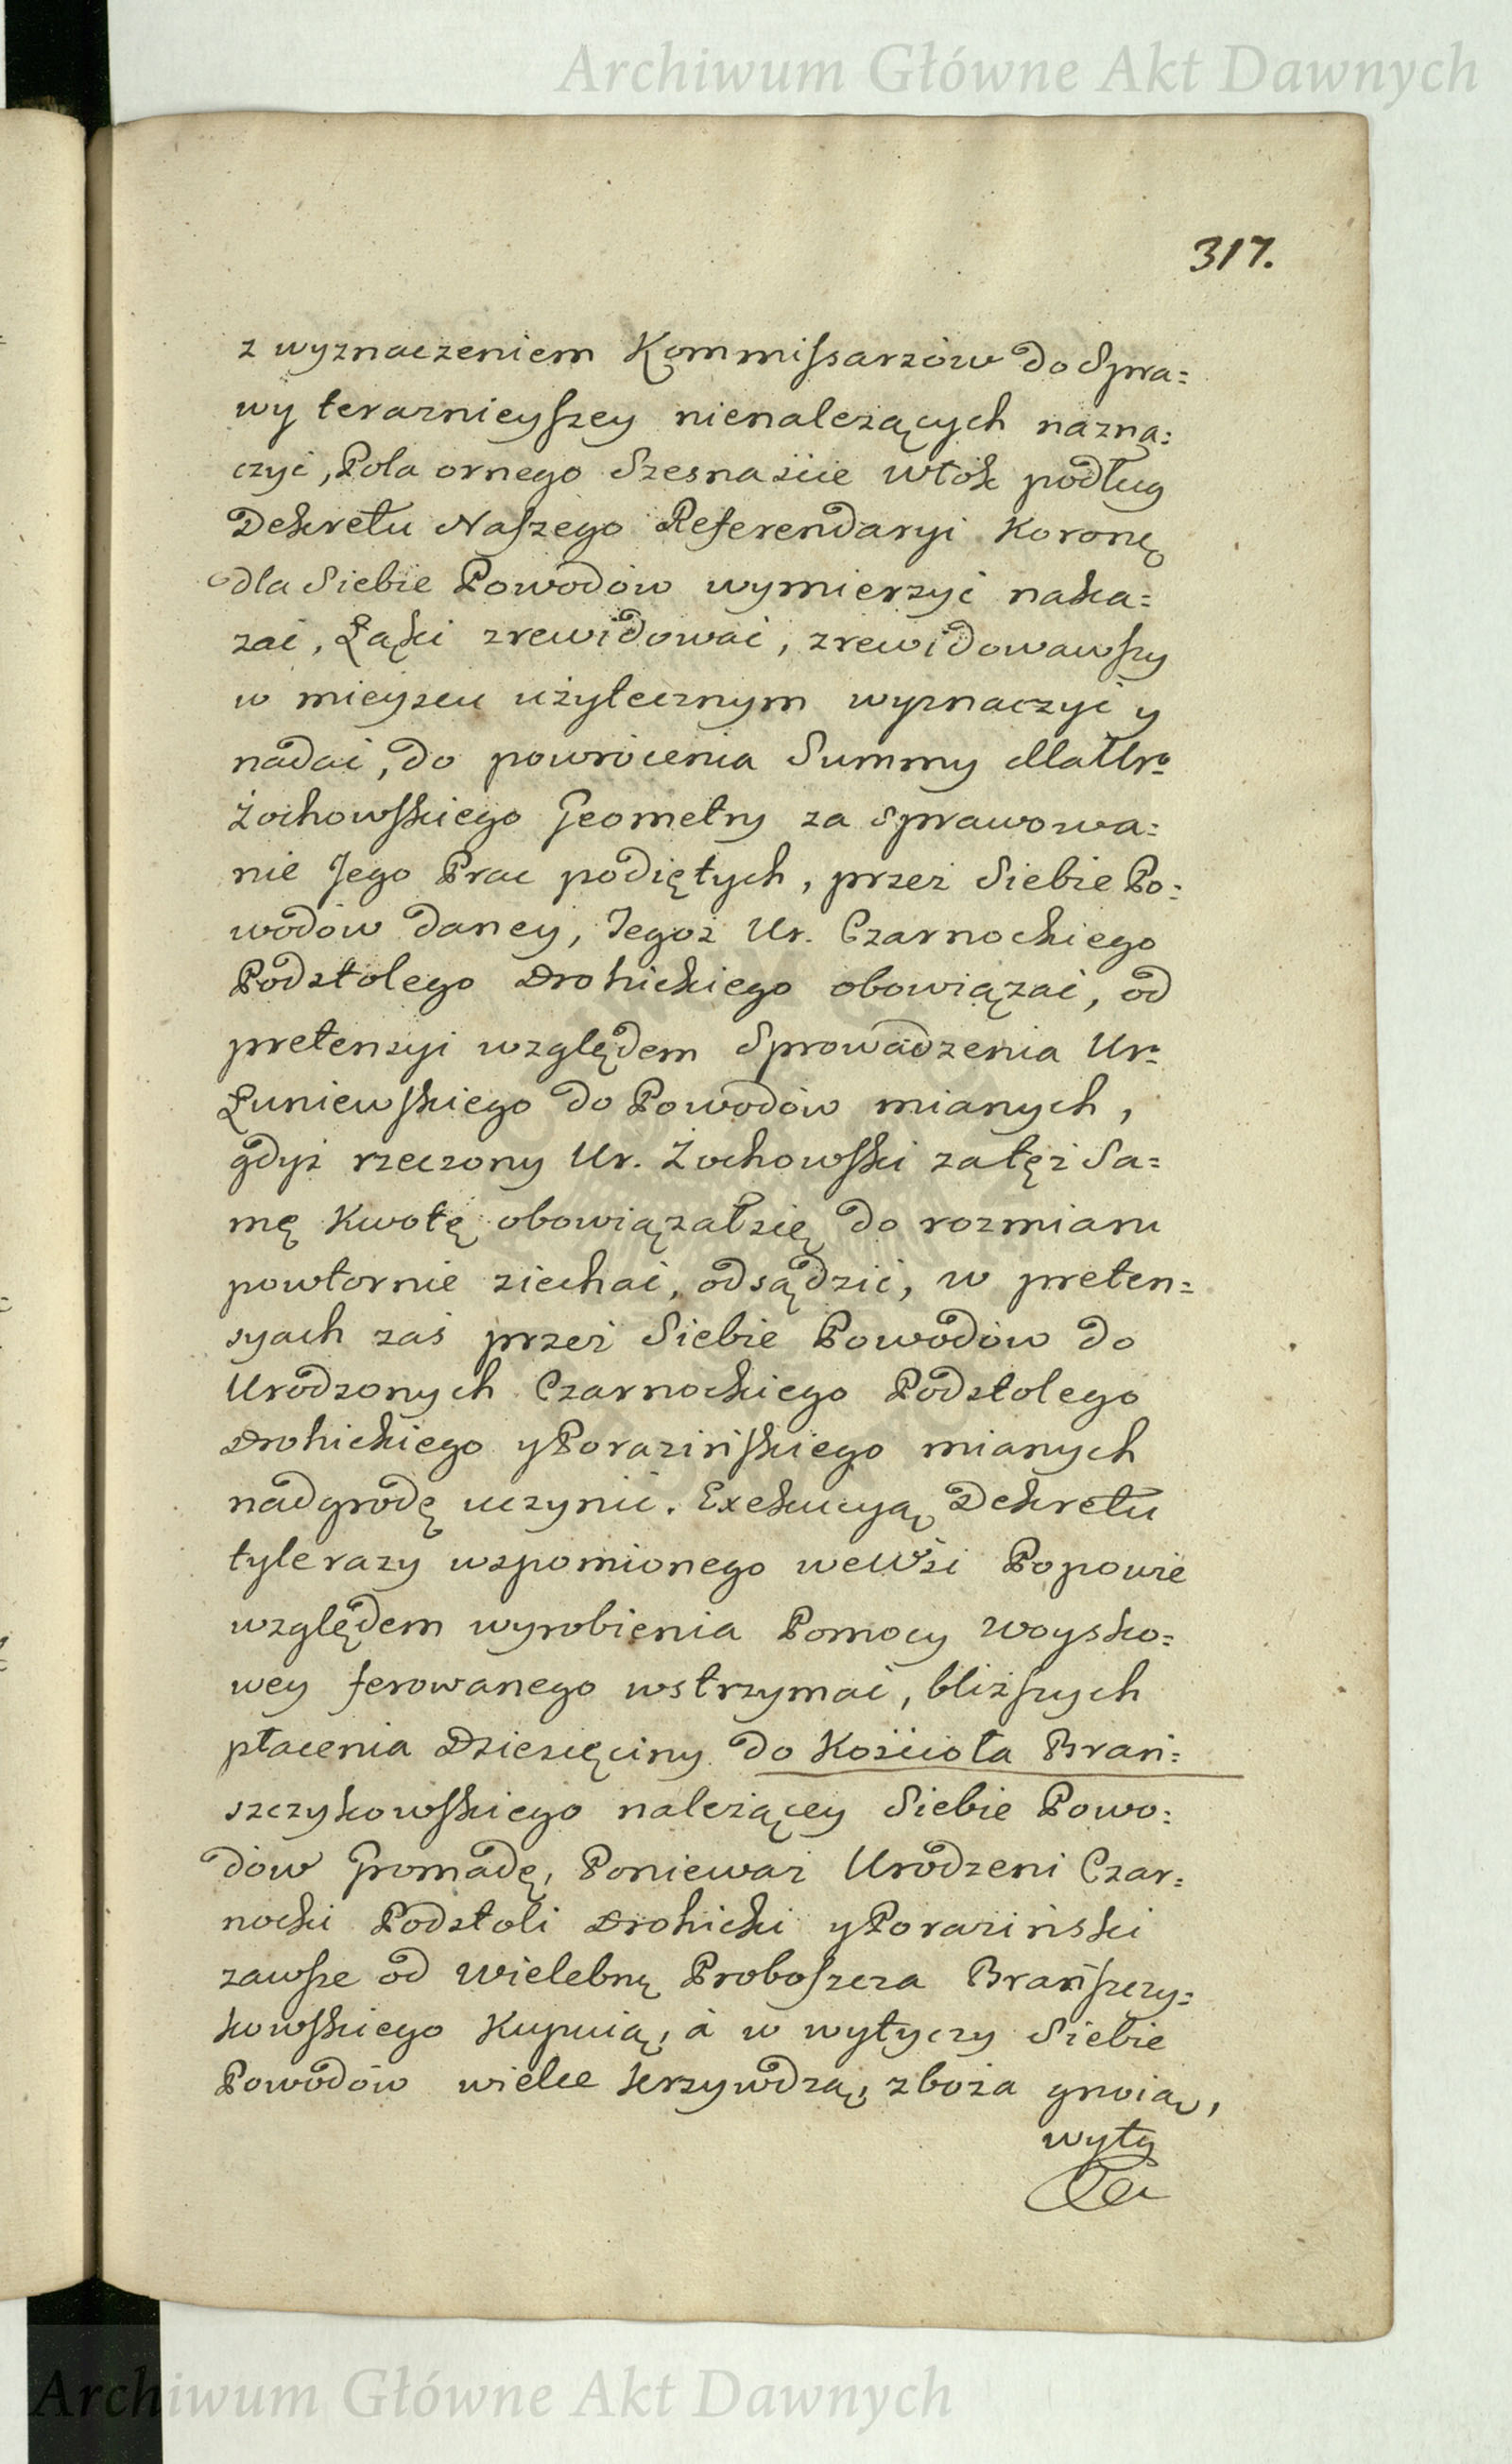 Archiwum Główne Akt Dawnych
317.
z wyznaczeniem Kommissarzów do Spra=
wy teraznieyszey nienależących nazna=
czyć, Pola ornego Szesnaście Włók podług
Dekretu Naszego Referendaryi Koronę
dla Siebie Powodów wymierzyć naka=
zać, Łąki zrewidować, zrewidowawszy
w mieyscu użytecznym wyznaczyć y
nadać, do powrócenia Summy dla Ur.
Żochowskiego Geometry za sprawowa=
nie Jego Prac podiętych, przez Siebie Po=
wodów daney, Tegoż Ur. Czarnockiego
Podstolego Drohickiego obowiązać, od
pretensyi względem Sprowadzenia Ur.
Łuniewskiego do Powodów mianych,
gdyż rzeczony Ur. Żochowski za tęż Sa=
mę Kwotę obowiązał się do rozmiaru
powtornie ziechać, odsądzić, w preten=
syach zaś przez Siebie Powodów do
Urodzonych Czarnockiego Podstolego
Drohickiego y Porazińskiego mianych
nadgrodę uczynić. Exekucyą Dekretu
tylerazy wspomionego we Wsi Popowie
względem wyrobienia Pomocy Woysko=
wey ferowanego wstrzymać, bliższych
płacenia Dziesięciny do Kościoła Brań=
szczykowskiego należącey Siebie Powo=
dów Gromadę, Ponieważ Urodzeni Czar=
nocki Podstoli Drohicki y Poraziński
zawsze od Wielebnę Proboszcza Brańszczy=
kowskiego Kupuią, á w wytyczy Siebie
Powodów wielce krzywdzą, zboża gnoią,
wyty
Archiwum Główne Akt Dawnych